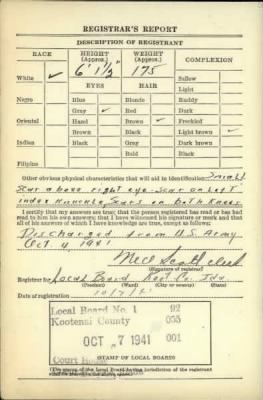 REGISTRAR'S REPORT
DESCRIPTION OF REGISTRANT
RACE HEIGHT (Approx.) WEIGHT (Approx.) COMPLEXION
6' 1½" 175
White ✓ Sallow
EYES HAIR Light
Negro Blue Blonde Ruddy
Gray ✓ Red Dark
Oriental Hazel Brown ✓ Freckled
Brown Black Light brown ✓
Indian Black Gray Dark brown
Bald Black
Filipino
Other obvious physical characteristics that will aid in identification Small
Scar above right eye - Scar on left
index knuckle, Scars on both knees
I certify that my answers are true; that the person registered has read or has had
read to him his own answers; that I have witnessed his signature or mark and that
all of his answers of which I have knowledge are true, except as follows:
Discharged from U.S. Army
Oct. 4 1941
Scott
(Signature of registrar)
Registrar for Local Board Koot. Co. Ida
(Precinct) (Ward) (City or county) (State)
Date of registration
Local Board No. 1 92
Kootenai County 055
OCT 7 1941 001
Court House
STAMP OF LOCAL BOARD
(The stamp of the Local Board having jurisdiction of the registrant